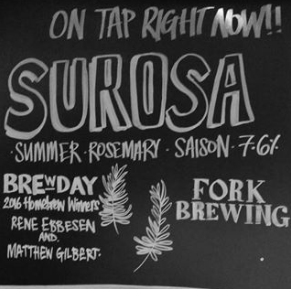 ON TAP RIGHT NOW!!
SUROSA
· SUMMER · ROSEMARY · SAISON · 7·6%
BREWDAY
2016 Homebrew Winners
RENE EBBESEN
AND
MATTHEW GILBERT·
FORK
BREWING